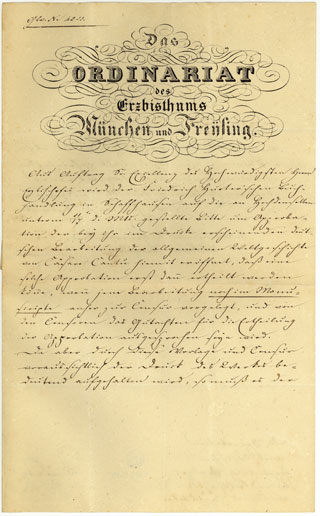 Das
ORDINARIAT
des
Erzbisthums
München und Freÿsing.
Auftrag Sr. Excellenz des Hochwürdigsten Herrn
Erzbischofes wird der Friedrich Hurterschen Buch-
handlung in Schaffhausen auf die an Hochdenselben
unterm d. Mts. gestellte Bitte um Approba-
tion der bey ihr im Drucke erscheinenden deut-
schen Bearbeitung der allgemeinen Weltgeschichte
von Cäsare Cantu hiemit eröffnet, daß eine
solche Approbation erst dann ertheilt werden
könne, wenn jene Bearbeitung noch im Manu-
scripte anher zur Censur vorgelegt, und von
den Censoren das Gutachten für die Ertheilung
der Approbation ausgesprochen seyn wird.
Da aber durch diese Vorlage und Censur
voraussichtlich der Druck des Werkes be-
deutend aufgehalten wird, so muß es der